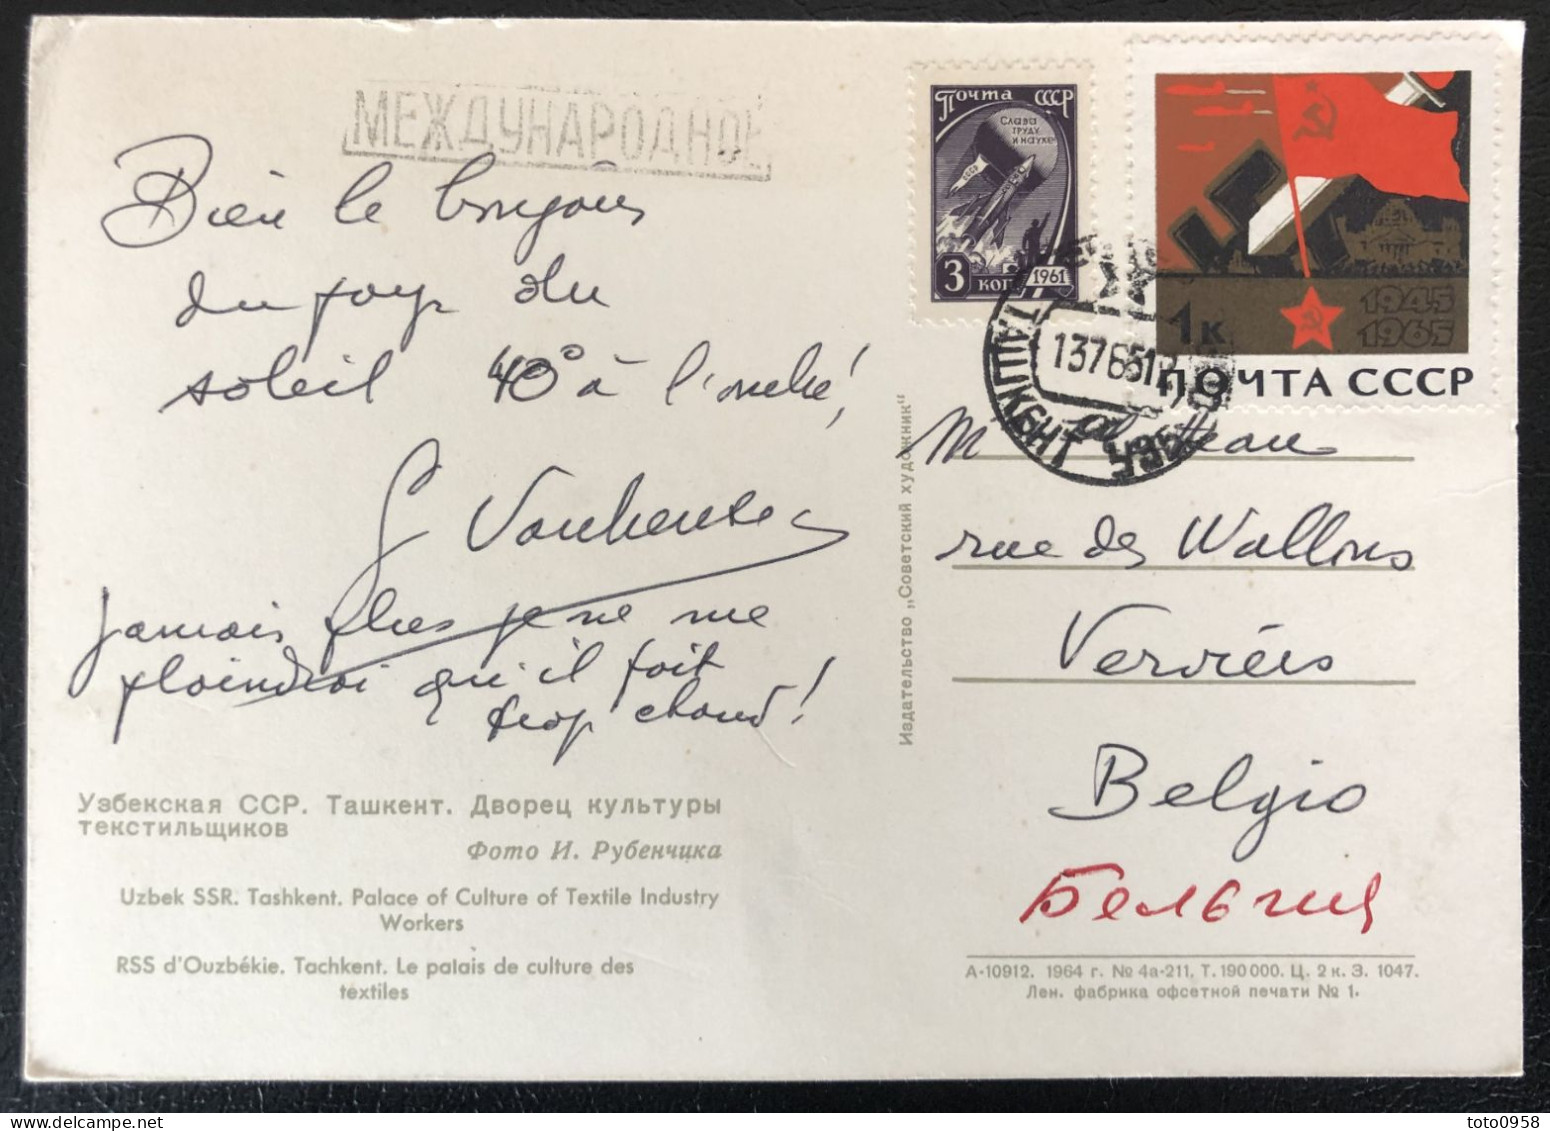 МЕЖДУНАРОДНОЕ
Bien le bonjour
du pays du
soleil 40° à l'ombre!
G Vankeule
Jamais plus je ne me
plaindrai qu'il fait
trop chaud!
Узбекская ССР. Ташкент. Дворец культуры
текстильщиков
Фото И. Рубенчика
Uzbek SSR. Tashkent. Palace of Culture of Textile Industry
Workers
RSS d'Ouzbékie. Tachkent. Le palais de culture des
textiles
Издательство „Советский художник“
Почта СССР
Слава
труду
и науке
СССР
3 коп
1961
1945
1965
1к
ПОЧТА СССР
ТАШКЕНТ УЗБ
1376512
M
rue des Wallons
Verviers
Belgio
Бельгия
А-10912. 1964 г. № 4а-211. Т. 190 000. Ц. 2 к. З. 1047.
Лен. фабрика офсетной печати № 1.
toto0958